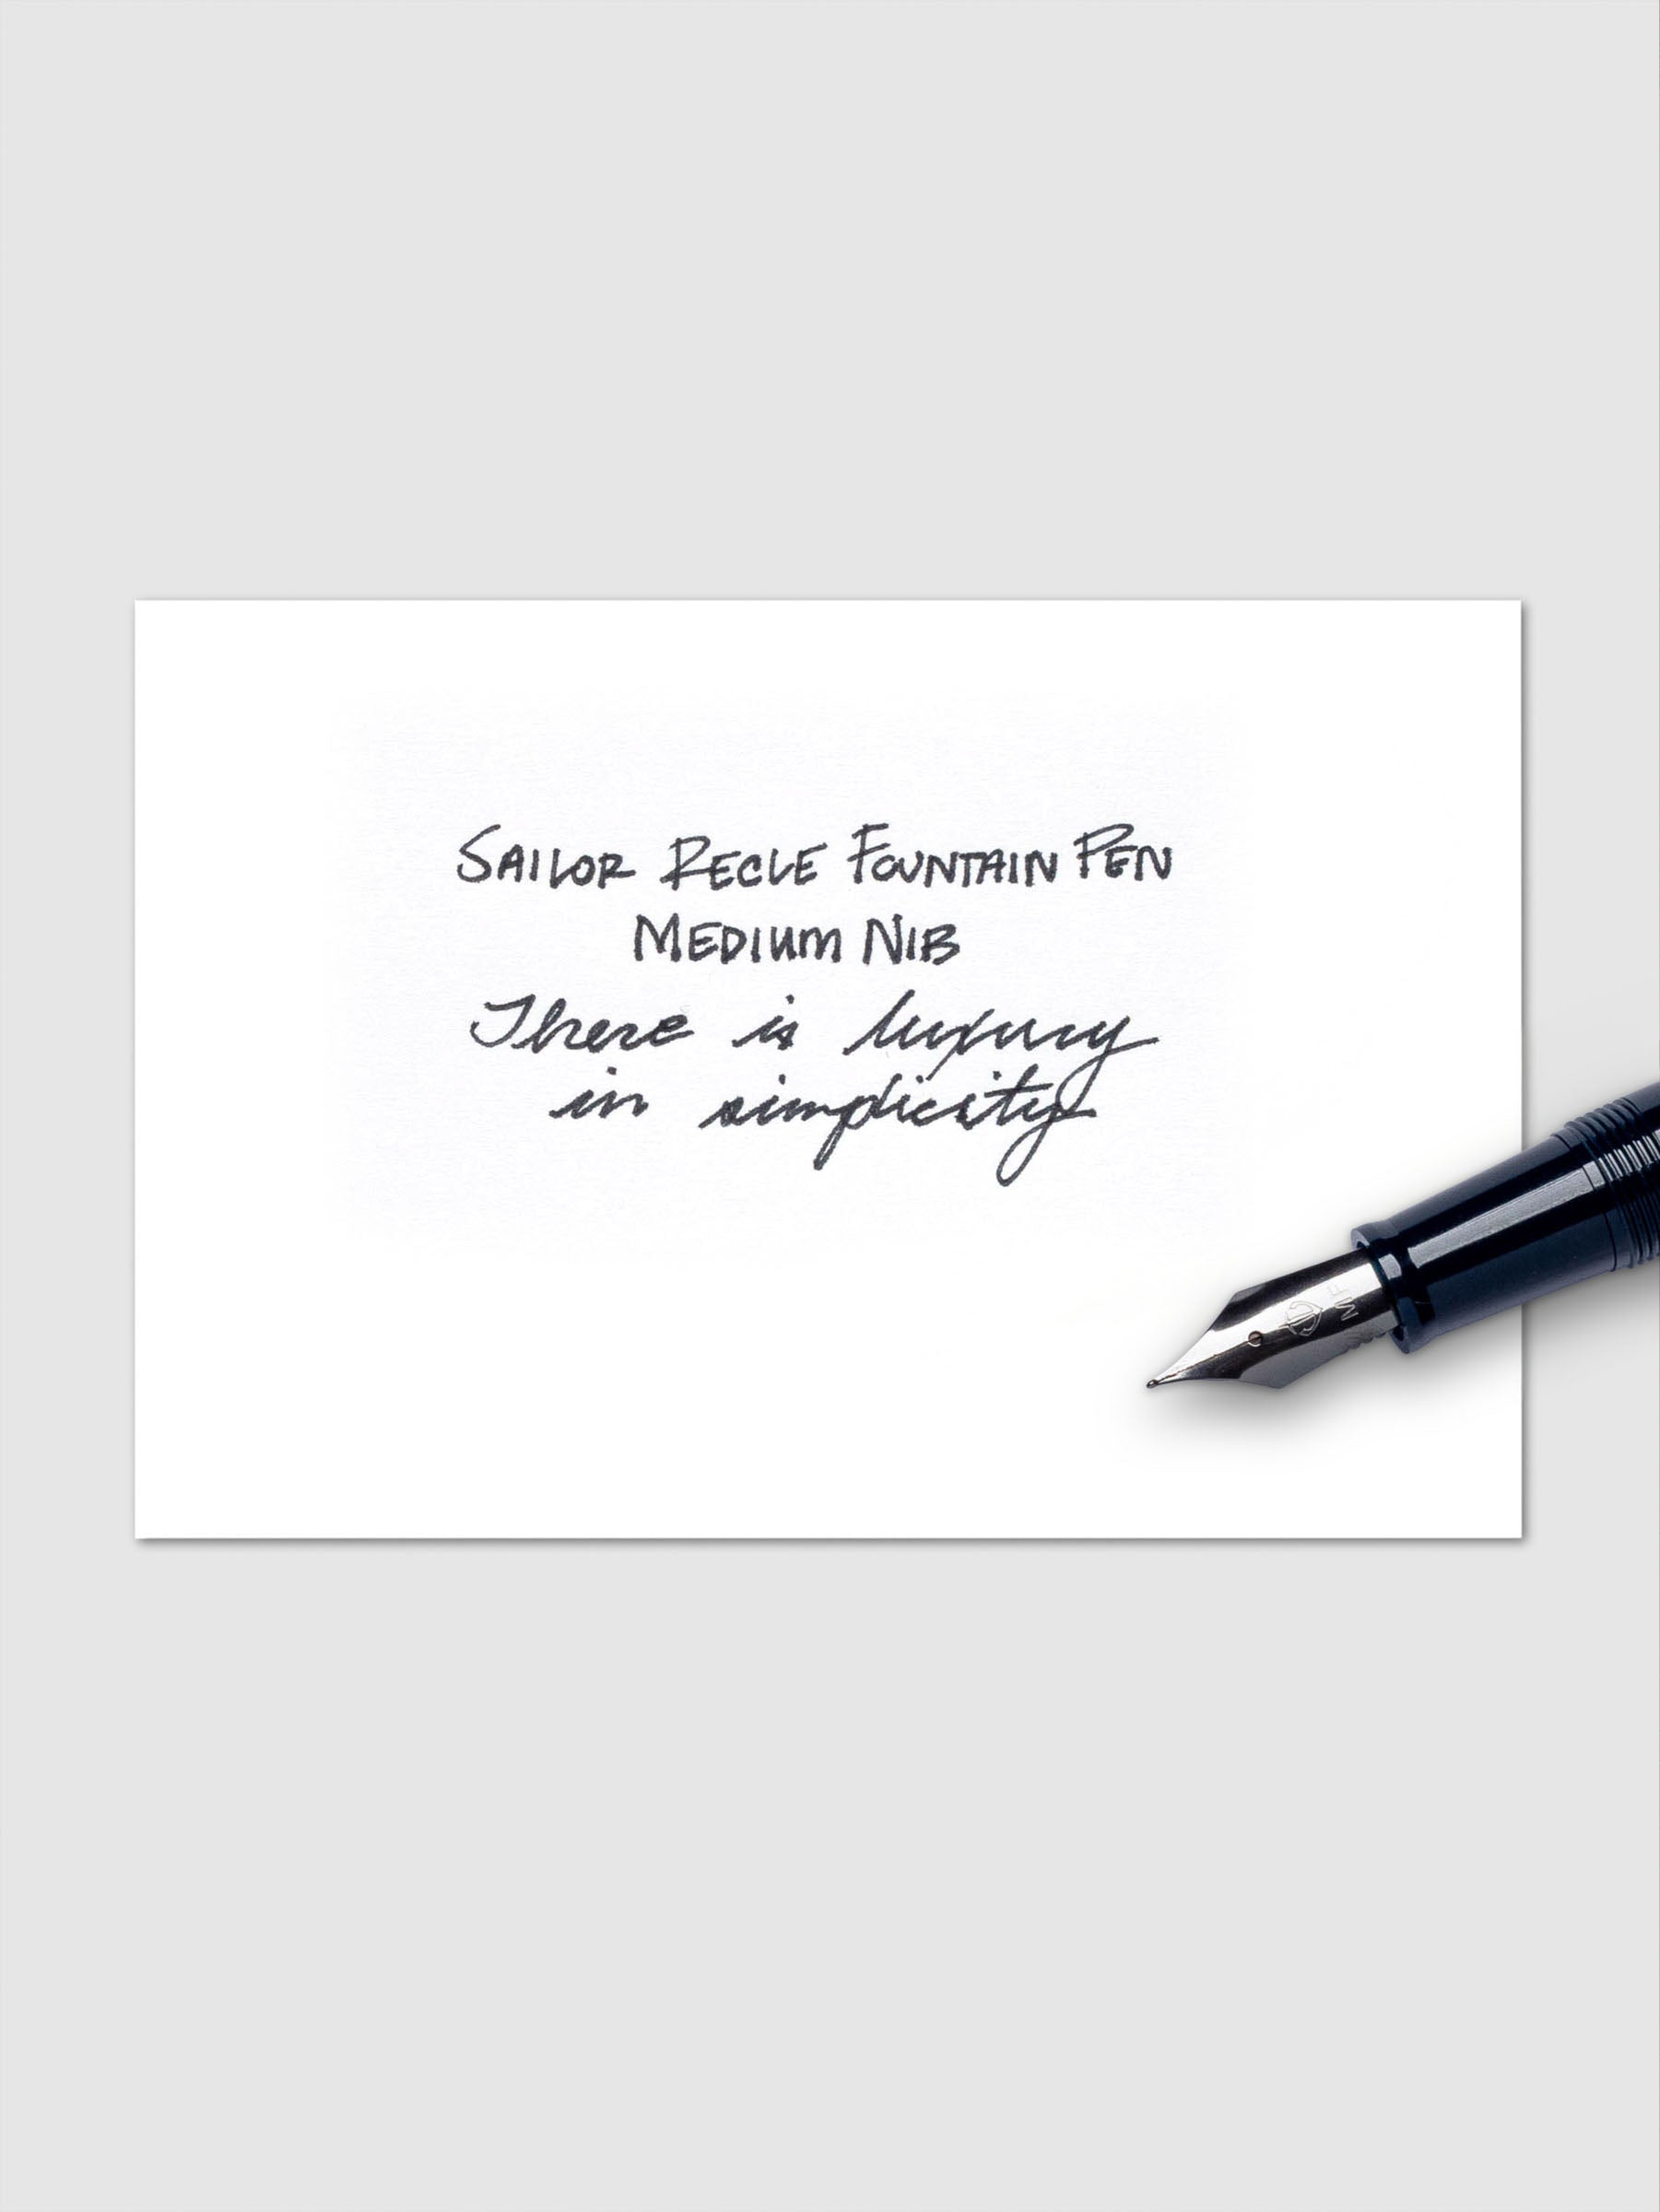 SAILOR RECLE FOUNTAIN PEN
MEDIUM NIB
There is luxury
in simplicity
MF